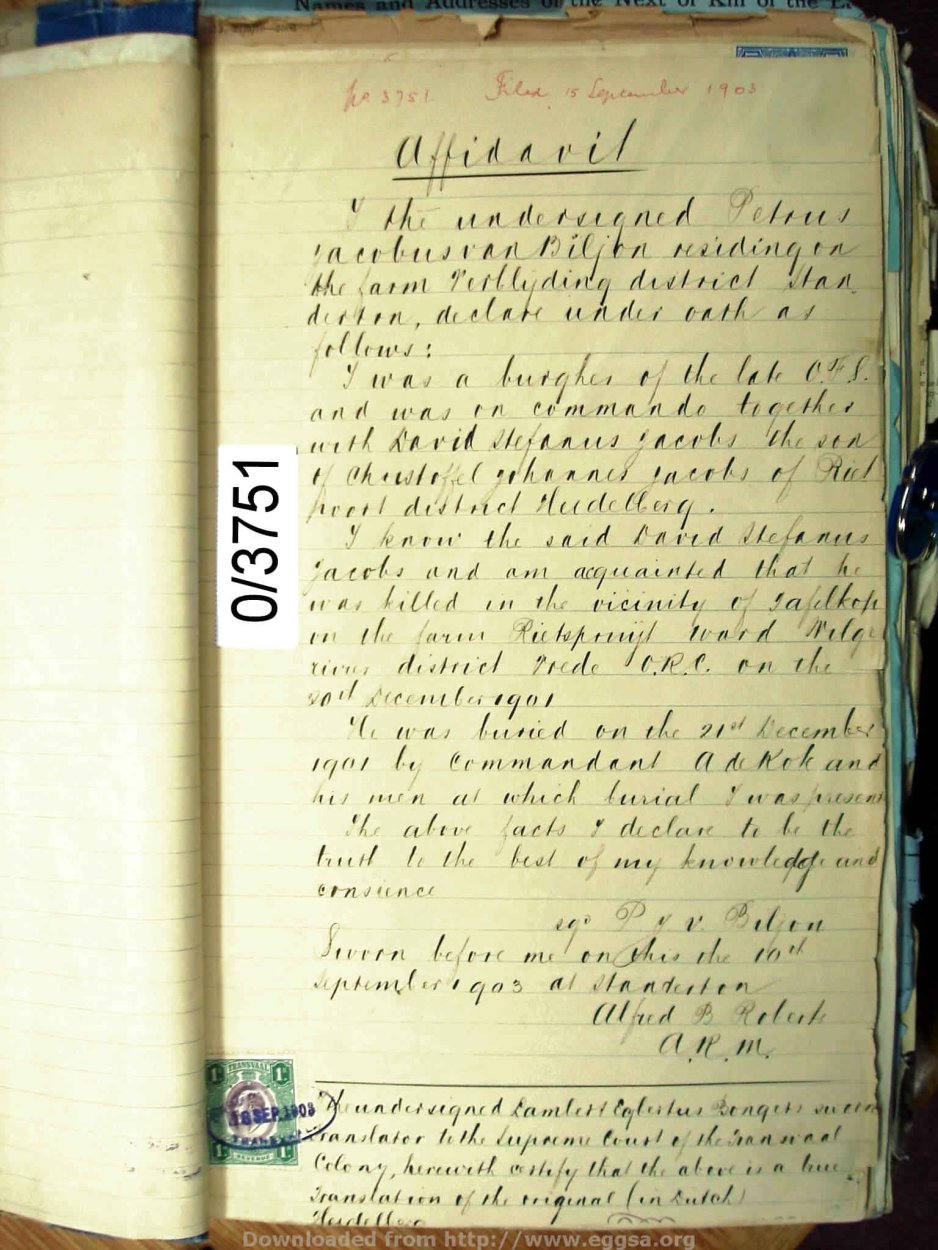 Names and Addresses of the Next of Kin of the
No 3751 Filed 15 September 1903
Affidavit
I the undersigned Petrus
Jacobus van Biljon residing on
the farm Verblyding district Stan
derton, declare under oath as
follows:
I was a burgher of the late O.F.S.
and was on commando together
with David Stefanus Jacobs the son
of Christoffel Johannes Jacobs of Riet
poort district Heidelberg.
I know the said David Stefanus
Jacobs and am acquainted that he
was killed in the vicinity of Tafelkop
on the farm Rietspruijt ward Wilge
river district Vrede O.R.C. on the
20th December 1901
He was buried on the 21st December
1901 by Commandant A de Kok and
his men at which burial I was present
The above facts I declare to be the
truth to the best of my knowledge and
consience
sgd P J v. Biljon
Sworn before me on this the 10th
September 1903 at Standerton
Alfred B Roberts
A.R.M.
0/3751
TRANSVAAL
1/- 1/-
18 SEP 1903
REVENUE
I the undersigned Lambert Eglertus Bongers sworn
translator to the Supreme Court of the Transvaal
Colony, herewith certify that the above is a true
Translation of the original (in Dutch)
Heidelberg
Downloaded from http://www.eggsa.org